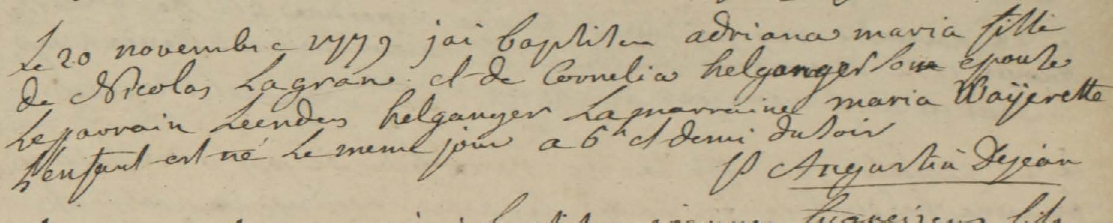 Le 20 novembre 1779 jai baptisé adriana maria fille
de Nicolas Lagran et de Cornelia helganger son epouse
Le parrain Leendes helganger La marraine maria Waÿerette
L'enfant est né Le meme jour a 6h et demi du soir
P Augustin Dejean